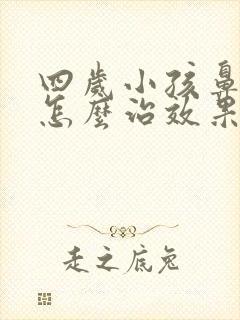 四歲小孩鼻
怎麼治效果
走之底兔